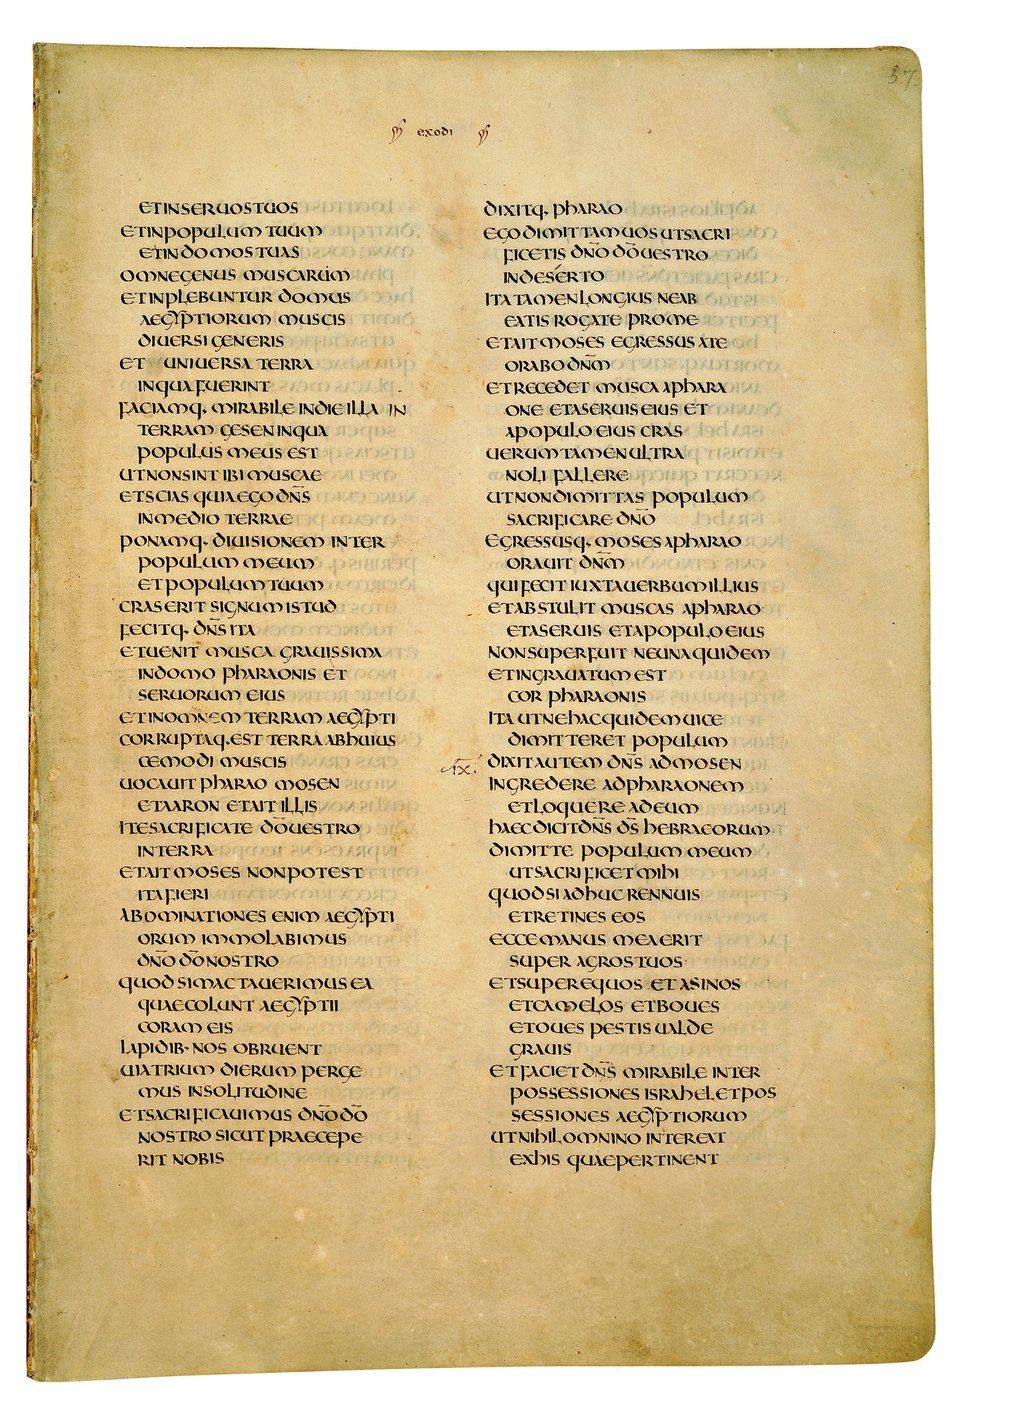 57
exodi
ETINSERUOSTUOS
ETINPOPULUM TUUM
ETINDOMOSTUAS
OMNEGENUS MUSCARUM
ETINPLEBUNTUR DOMUS
AEGYPTIORUM MUSCIS
DIUERSI GENERIS
ET UNIUERSA TERRA
INQUAFUERINT
FACIAMQ· MIRABILE INDIE ILLA IN
TERRAM GESEN INQUA
POPULUS MEUS EST
UTNONSINT IBI MUSCAE
ETSCIAS QUIAEGO DN̄S
INMEDIO TERRAE
PONAMQ· DIUISIONEM INTER
POPULUM MEUM
ETPOPULUMTUUM
CRAS ERIT SIGNUM ISTUD
FECITQ· DN̄S ITA
ETUENIT MUSCA GRAUISSIMA
INDOMO PHARAONIS ET
SERUORUM EIUS
ETINOMNEM TERRAM AEGYPTI
CORRUPTAQ·EST TERRA ABHUIUS
CEMODI MUSCIS
UOCAUIT PHARAO MOSEN
ETAARON ETAIT ILLIS
ITESACRIFICATE DŌUESTRO
INTERRA
ETAIT MOSES NONPOTEST
ITAFIERI
ABOMINATIONES ENIM AEGYPTI
ORUM IMMOLABIMUS
DN̄O DŌNOSTRO
QUOD SIMACTAUERIMUS EA
QUAECOLUNT AEGYPTII
CORAM EIS
LAPIDIB· NOS OBRUENT
UIATRIUM DIERUM PERGE
MUS INSOLITUDINE
ETSACRIFICAUIMUS DN̄O DŌ
NOSTRO SICUT PRAECEPE
RIT NOBIS
DIXITQ· PHARAO
EGO DIMITTAM UOS UTSACRI
FICETIS DN̄O DŌUESTRO
INDESERTO
ITATAMEN LONGIUS NEAB
EATIS ROGATE PROME
ETAIT MOSES EGRESSUS ATE
ORABO DN̄M
ETRECEDET MUSCA APHARA
ONE ETASERUIS EIUS ET
APOPULO EIUS CRAS
UERUMTAMEN ULTRA
NOLI FALLERE
UTNONDIMITTAS POPULUM
SACRIFICARE DN̄O
EGRESSUSQ· MOSES APHARAO
ORAUIT DN̄M
QUI FECIT IUXTAUERBUM ILLIUS
ETABSTULIT MUSCAS APHARAO
ETASERUIS ETAPOPULO EIUS
NONSUPERFUIT NEUNAQUIDEM
ETINGRAUATUM EST
COR PHARAONIS
ITA UTNEHACQUIDEM UICE
DIMITTERET POPULUM
IX. DIXITAUTEM DN̄S ADMOSEN
INGREDERE ADPHARAONEM
ETLOQUERE ADEUM
HAECDICITDN̄S D̄S HEBRAEORUM
DIMITTE POPULUM MEUM
UTSACRIFICET MIHI
QUODSIADHUC RENNUIS
ETRETINES EOS
ECCE MANUS MEA ERIT
SUPER AGROS TUOS
ETSUPEREQUOS ET ASINOS
ETCAMELOS ETBOUES
ETOUES PESTIS UALDE
GRAUIS
ETFACIET DN̄S MIRABILE INTER
POSSESSIONES ISRAHEL ETPOS
SESSIONES AEGYPTIORUM
UTNIHIL OMNINO INTEREAT
EXHIS QUAEPERTINENT